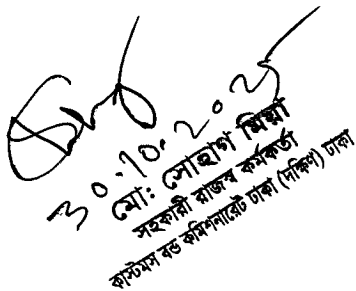 30.10.2025
মো: সোহাগ মিয়া
সহকারী রাজস্ব কর্মকর্তা
কাস্টমস বন্ড কমিশনারেট ঢাকা (দক্ষিণ) ঢাকা